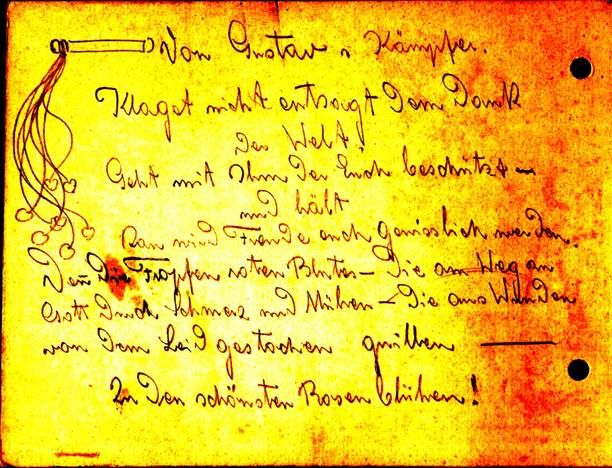 Von Gustav v Kämpfer.
Klaget nicht entsagt Dem Dank
Der Welt,
Geht mit Ihm Der Euch beschützt —
und hält
Dan wird Freude euch genisslich werden.
Den̄ Die Tropfen roten Blutes — Die am Weg an
Gott Durch Schmerz und Mühen — Die aus Wunden
von Dem Leid gestochen quillen
In Den schönsten Rosen blühen!